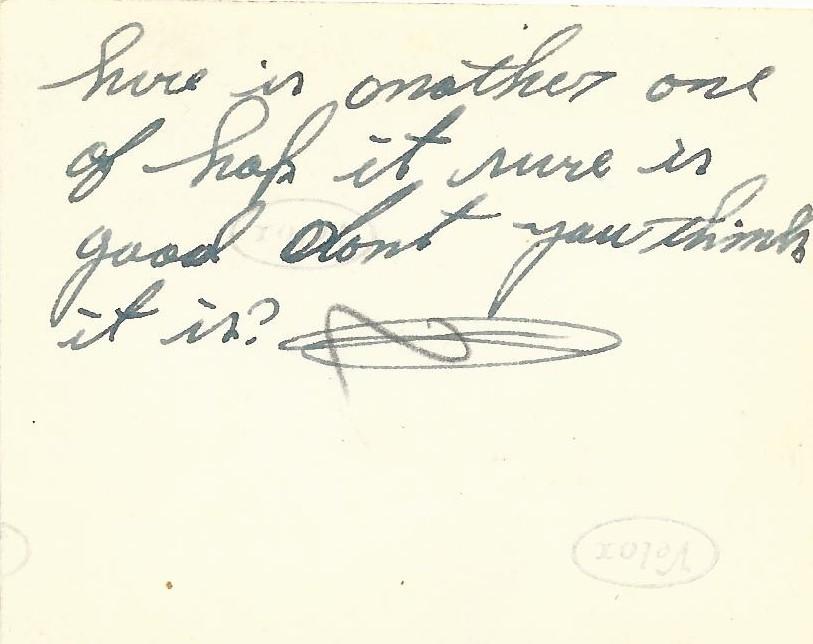 here is another one
of hap it sure is
good dont you think
it is?
Velox
Velox